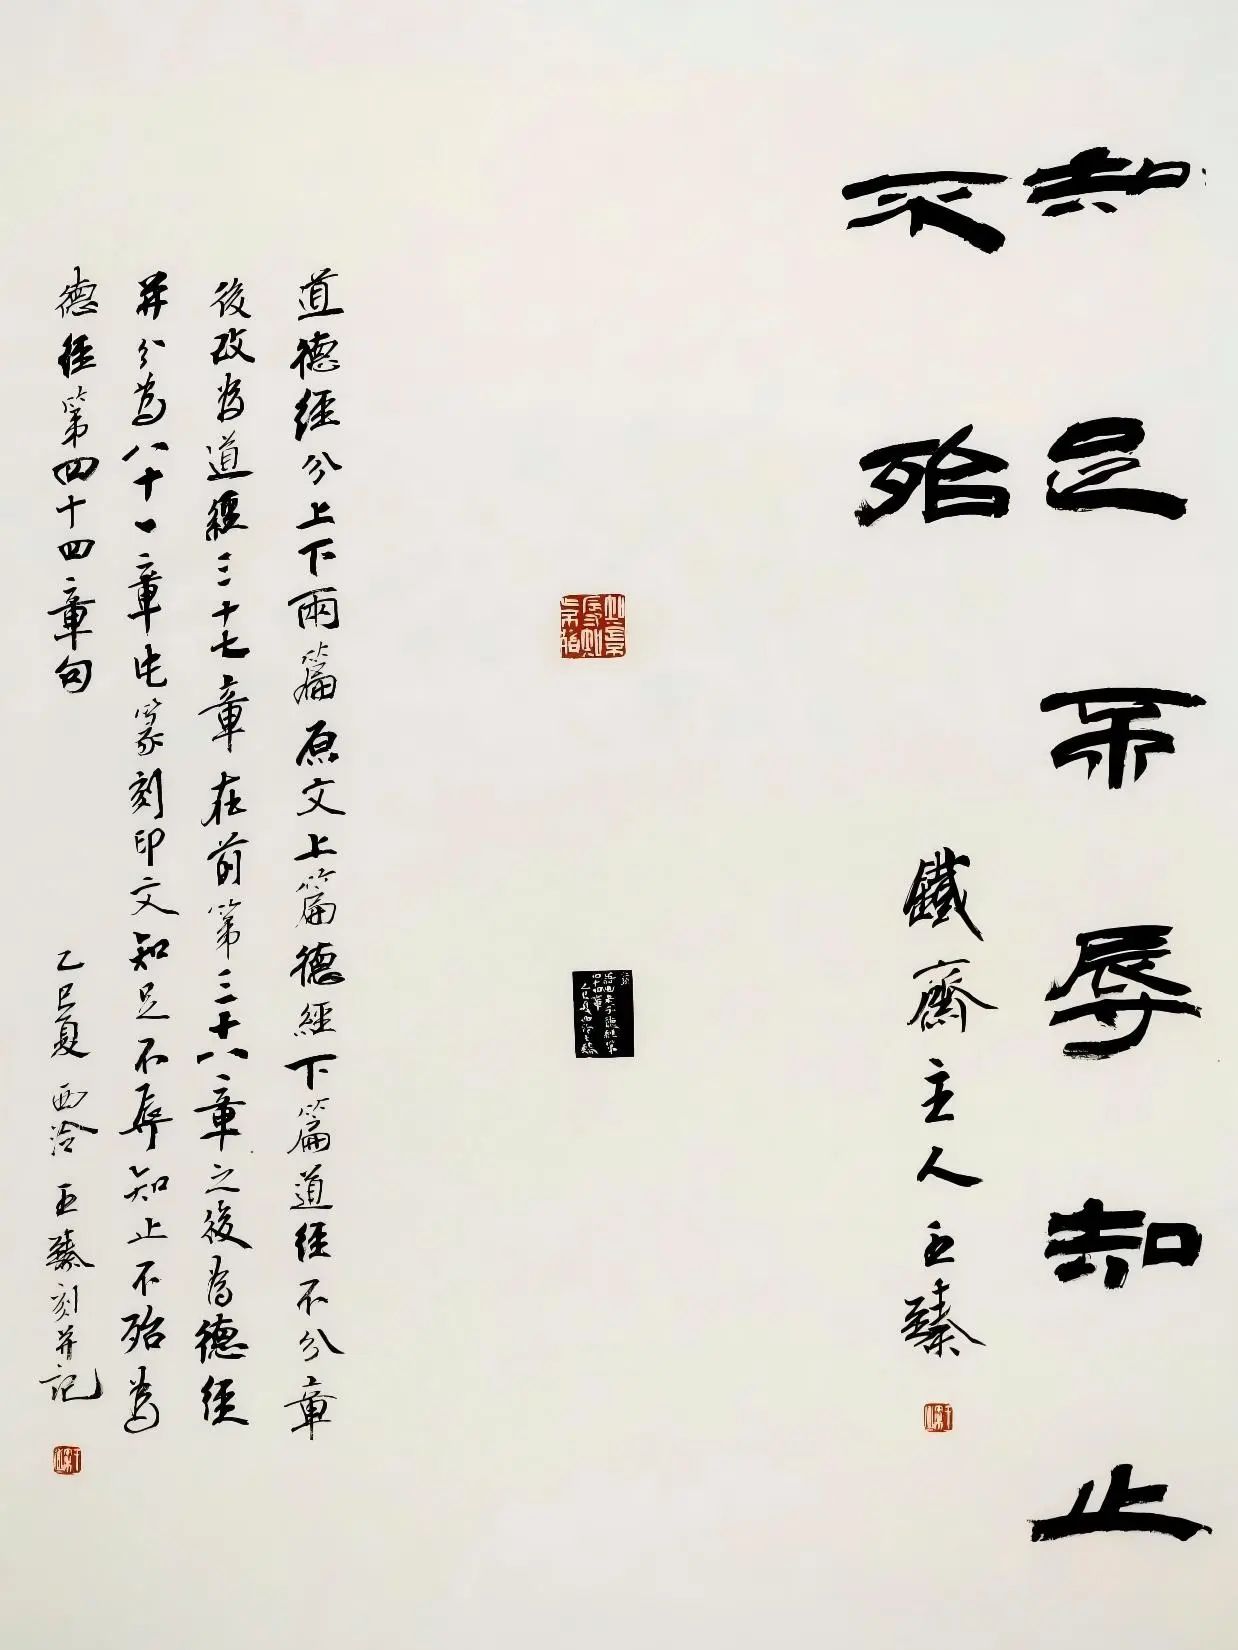 知足不辱知止
不殆
鐵齋主人王臻
知足不辱知止不殆
道德經分上下兩篇原文上篇德經下篇道經不分章
後改為道經三十七章在前第三十八章之後為德經
并分為八十一章此篆刻印文知足不辱知止不殆為
德經第四十四章句
乙巳夏西泠王臻刻并記